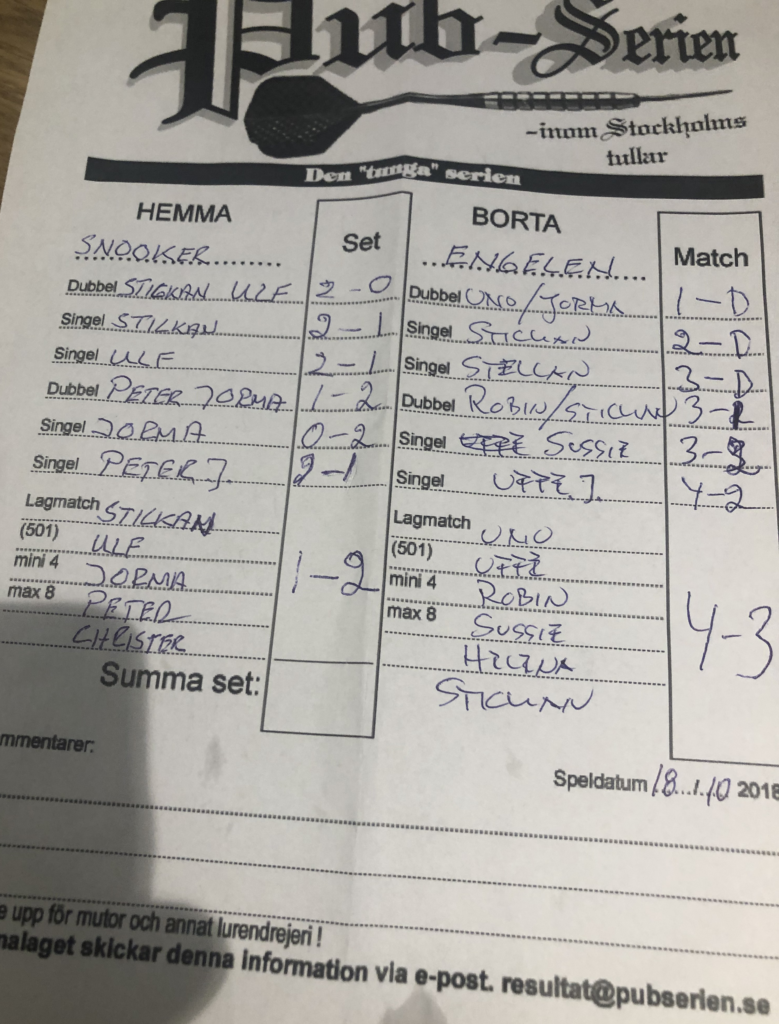 Pub-Serien
-inom Stockholms
tullar
Den "tunga" serien
HEMMA Set BORTA Match
SNOOKER ENGELEN
Dubbel STICKAN ULF 2-0 Dubbel UNO/JORMA 1-0
Singel STICKAN 2-1 Singel STICKAN 2-0
Singel ULF 2-1 Singel STELLAN 3-0
Dubbel PETER JORMA 1-2 Dubbel ROBIN/STICKAN 3-1
Singel JORMA 0-2 Singel SUSSIE 3-2
Singel PETER J. 2-1 Singel UFFE J. 4-2
Lagmatch STICKAN Lagmatch UNO
(501) ULF (501) UFFE
mini 4 JORMA 1-2 mini 4 ROBIN
max 8 PETER max 8 SUSSIE 4-3
CHRISTER HELENA
Summa set: STICKAN
mmentarer:
Speldatum 18 / 10 2018
e upp för mutor och annat lurendrejeri !
malaget skickar denna information via e-post. resultat@pubserien.se